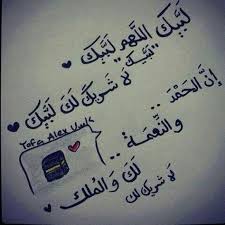 لَبَّيْكَ اللَّهُمَّ لَبَّيْكَ
"لَبَّيْكَ"
لَا شَرِيكَ لَكَ لَبَّيْكَ
إِنَّ الْحَمْدَ ..
وَالنِّعْمَةَ ..
لَكَ وَالْمُلْكَ
لَا شَرِيكَ لَكَ